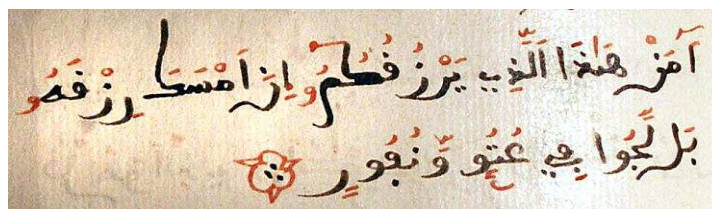 اَمَّنْ هَٰذَا اَ۬لذِے يَرْزُقُكُمُۥٓ إِنَ اَمْسَكَ رِزْقَهُۥ
بَل لَّجُّواْ فِے عُتُوّٖ وَنُفُورٍ